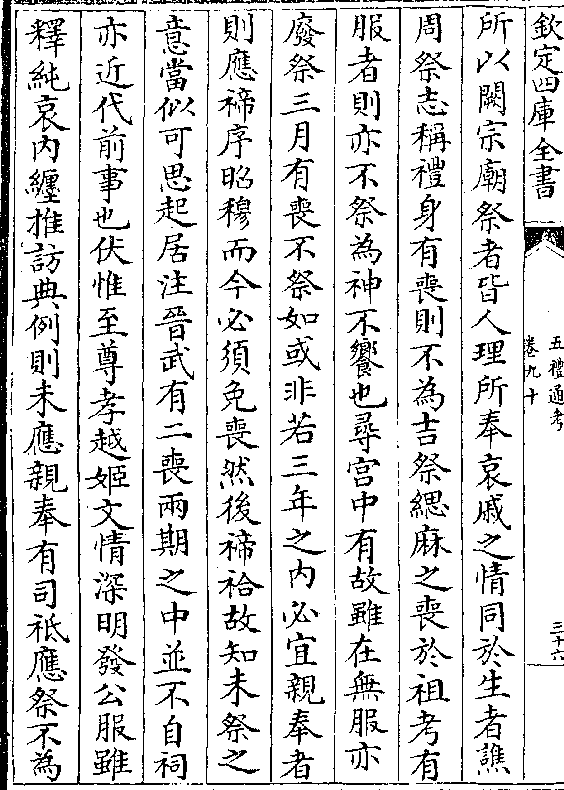 欽定四庫全書
五禮通考
卷九十
三十六
所以闕宗廟祭者皆人理所奉哀戚之情同於生者譙
周祭志稱禮身有喪則不為吉祭緦麻之喪於祖考有
服者則亦不祭為神不饗也尋宫中有故雖在無服亦
廢祭三月有喪不祭如或非若三年之内必宜親奉者
則應禘序昭穆而今必須免喪然後禘祫故知未祭之
意當似可思起居注晉武有二喪兩期之中並不自祠
亦近代前事也伏惟至尊孝越姬文情深明發公服雖
釋純哀内纏推訪典例則未應親奉有司祗應祭不為